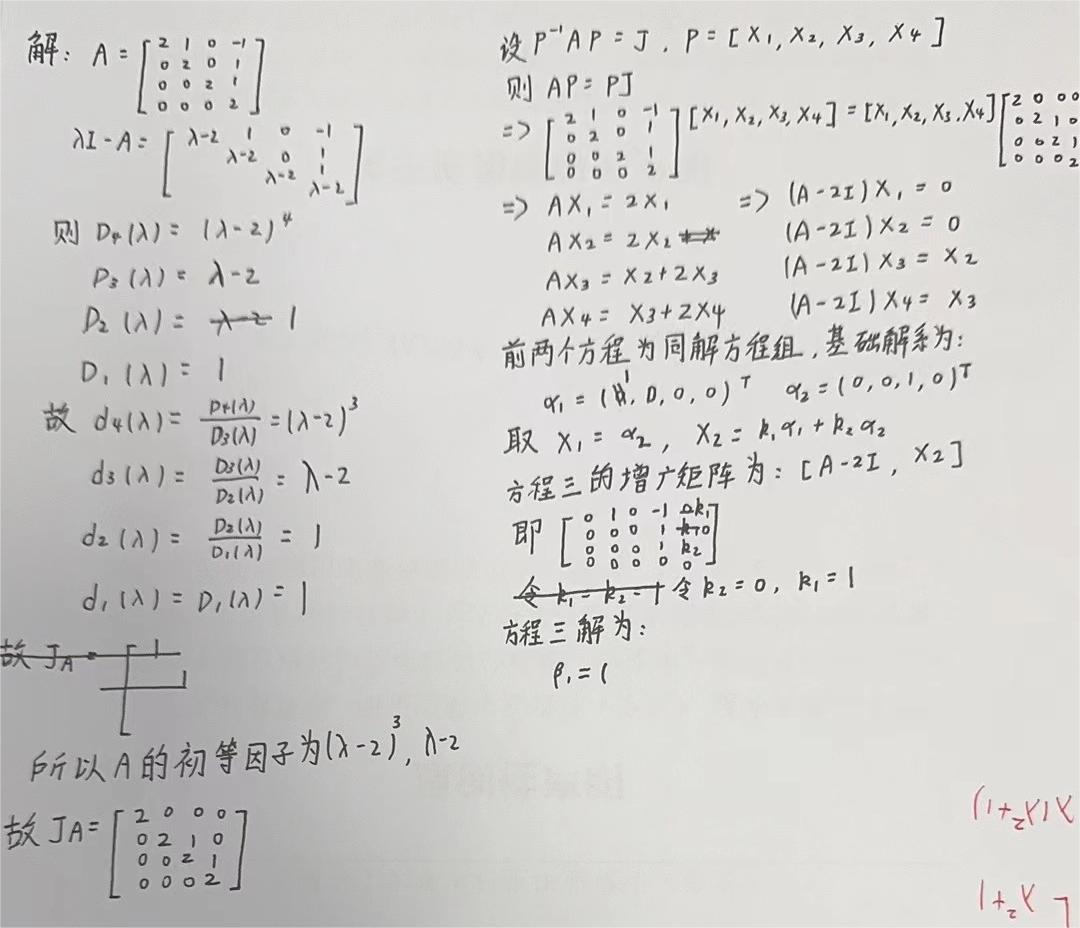 解: A = [2 1 0 -1
0 2 0 1
0 0 2 1
0 0 0 2]
λI-A = [λ-2 1 0 -1
λ-2 0 1
λ-2 1
λ-2]
则 D₄(λ) = (λ-2)⁴
D₃(λ) = λ-2
D₂(λ) = λ-2 1
D₁(λ) = 1
故 d₄(λ) = D₄(λ)/D₃(λ) = (λ-2)³
d₃(λ) = D₃(λ)/D₂(λ) = λ-2
d₂(λ) = D₂(λ)/D₁(λ) = 1
d₁(λ) = D₁(λ) = 1
故 J_A =
所以A的初等因子为(λ-2)³, λ-2
故 J_A = [2 0 0 0
0 2 1 0
0 0 2 1
0 0 0 2]
设 P⁻¹AP = J, P = [X₁, X₂, X₃, X₄]
则 AP = PJ
=> [2 1 0 -1
0 2 0 1
0 0 2 1
0 0 0 2] [X₁, X₂, X₃, X₄] = [X₁, X₂, X₃, X₄] [2 0 0 0
0 2 1 0
0 0 2 1
0 0 0 2
=> AX₁ = 2X₁ => (A-2I)X₁ = 0
AX₂ = 2X₂ (A-2I)X₂ = 0
AX₃ = X₂+2X₃ (A-2I)X₃ = X₂
AX₄ = X₃+2X₄ (A-2I)X₄ = X₃
前两个方程为同解方程组,基础解系为:
α₁ = (1, 0, 0, 0)ᵀ α₂ = (0, 0, 1, 0)ᵀ
取 X₁ = α₂, X₂ = k₁α₁+k₂α₂
方程三的增广矩阵为: [A-2I, X₂]
即 [0 1 0 -1 k₁
0 0 0 1 0
0 0 0 1 k₂
0 0 0 0 0]
令 k₁ = k₂ = 1 令 k₂ = 0, k₁ = 1
方程三解为:
β₁ = (
λ(λ²+1)
λ²+1